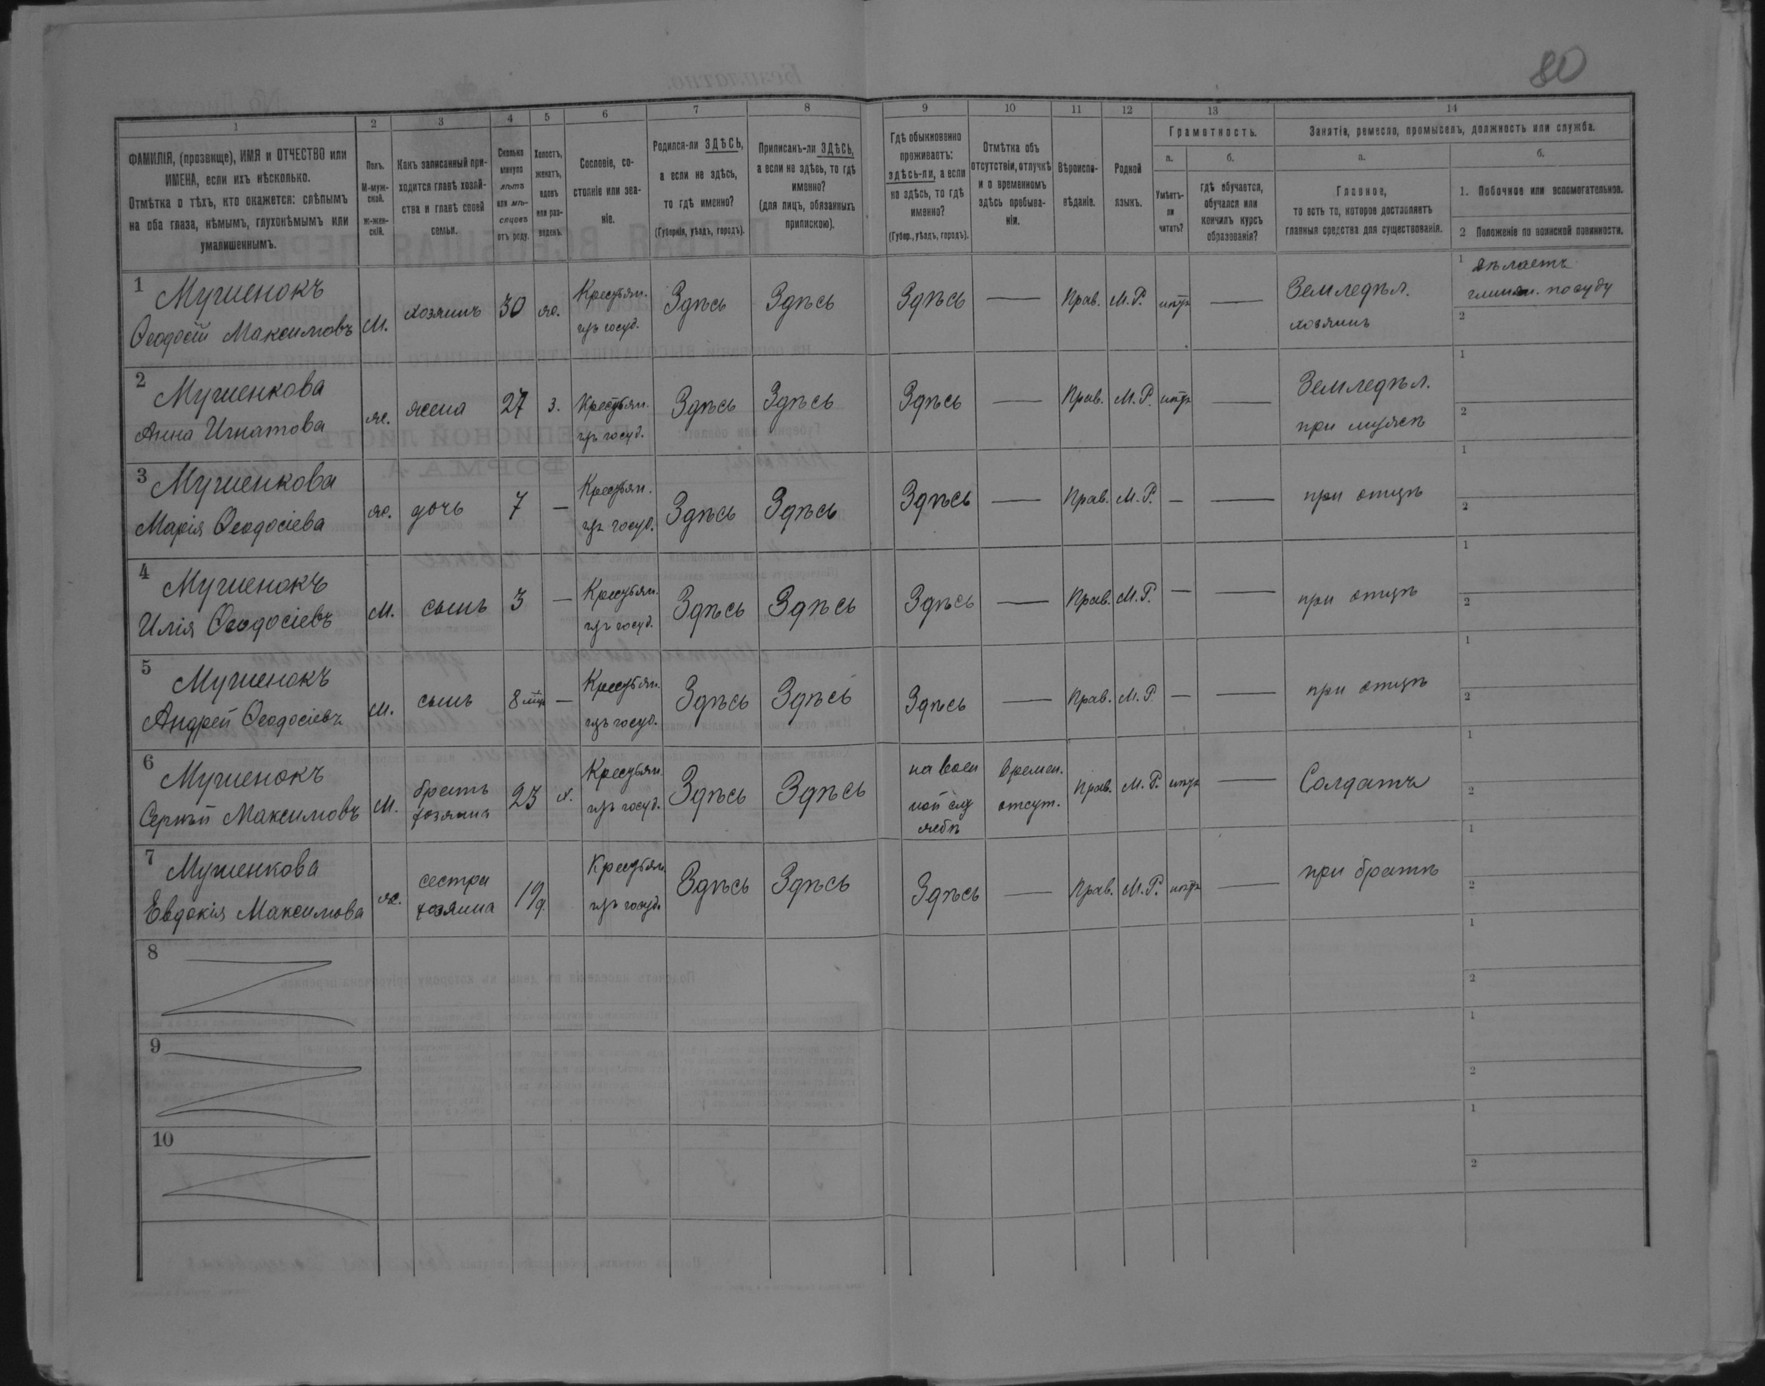 80
1
2
3
4
5
6
7
8
9
10
11
12
13
14
ФАМИЛІЯ, (прозвище), ИМЯ и ОТЧЕСТВО или
ИМЕНА, если ихъ нѣсколько.
Отмѣтка о тѣхъ, кто окажется: слѣпымъ
на оба глаза, нѣмымъ, глухонѣмымъ или
умалишеннымъ.
Полъ.
М-муж-
ской.
Ж-жен-
скій.
Какъ записанный при-
ходится главѣ хозяй-
ства и главѣ своей
семьи.
Сколько
минуло
лѣтъ
или мѣ-
сяцевъ
отъ роду.
Холостъ,
женатъ,
вдовъ
или раз-
веденъ.
Сословіе, со-
стояніе или зва-
ніе.
Родился-ли ЗДѢСЬ,
а если не здѣсь,
то гдѣ именно?
(Губернія, уѣздъ, городъ).
Приписанъ-ли ЗДѢСЬ,
а если не здѣсь, то гдѣ
именно?
(для лицъ, обязанныхъ
припискою).
Гдѣ обыкновенно
проживаетъ:
здѣсь-ли, а если
не здѣсь, то гдѣ
именно?
(Губер., уѣздъ, городъ).
Отмѣтка объ
отсутствіи, отлучкѣ
и о временномъ
здѣсь пребыва-
ніи.
Вѣроиспо-
вѣданіе.
Родной
языкъ.
Грамотность.
а.
Умѣетъ-
ли
читать?
б.
гдѣ обучается,
обучался или
кончилъ курсъ
образованія?
Занятіе, ремесло, промыселъ, должность или служба.
а.
Главное,
то есть то, которое доставляетъ
главныя средства для существованія.
б.
1. Побочное или вспомогательное.
2 Положеніе по воинской повинности.
1 Мушенокъ
Ѳеодосій Максимовъ
М.
хозяинъ
30
ж.
Крестьян.
изъ госуд.
Здѣсь
Здѣсь
Здѣсь
—
Прав.
М.Р.
нѣтъ
—
Земледѣл.
хозяинъ
1 дѣлаетъ
глинян. посуду
2
2 Мушенкова
Анна Игнатова
ж.
жена
27
з.
Крестьян.
изъ госуд.
Здѣсь
Здѣсь
Здѣсь
—
Прав.
М.Р.
нѣтъ
—
Земледѣл.
при мужѣ
1
2
3 Мушенкова
Марія Ѳеодосіева
ж.
дочь
7
—
Крестьян.
изъ госуд.
Здѣсь
Здѣсь
Здѣсь
—
Прав.
М.Р.
—
—
при отцѣ
1
2
4 Мушенокъ
Илія Ѳеодосіевъ
М.
сынъ
3
—
Крестьян.
изъ госуд.
Здѣсь
Здѣсь
Здѣсь
—
Прав.
М.Р.
—
—
при отцѣ
1
2
5 Мушенокъ
Андрей Ѳеодосіевъ
М.
сынъ
8 мѣс
—
Крестьян.
изъ госуд.
Здѣсь
Здѣсь
Здѣсь
—
Прав.
М.Р.
—
—
при отцѣ
1
2
6 Мушенокъ
Сергѣй Максимовъ
М.
братъ
хозяина
23
х.
Крестьян.
изъ госуд.
Здѣсь
Здѣсь
на воен
ной слу
жбѣ
времен.
отсут.
Прав.
М.Р.
нѣтъ
—
Солдатъ
1
2
7 Мушенкова
Евдокія Максимова
ж.
сестра
хозяина
19
Крестьян.
изъ госуд.
Здѣсь
Здѣсь
Здѣсь
—
Прав.
М.Р.
нѣтъ
—
при братѣ
1
2
8
1
2
9
1
2
10
1
2